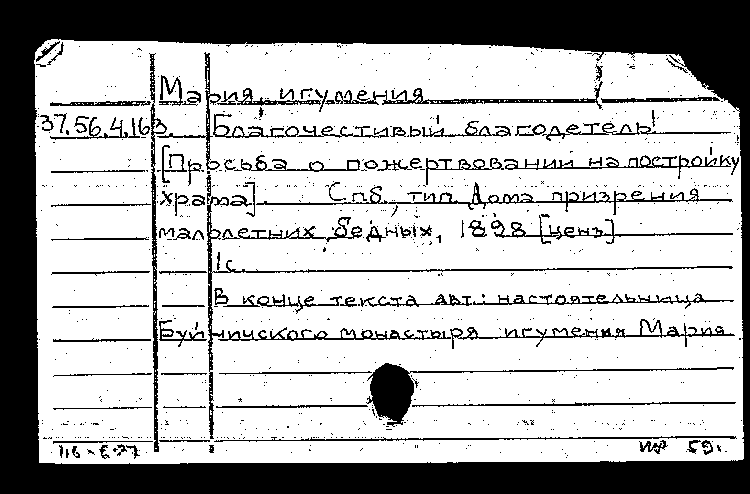 Мария, игумения
37.56.4.163. Благочестивый благодетель!
[Просьба о пожертвовании на постройку
храма]. Спб, тип. Дома призрения
малолетних бедных, 1898 [ценз]
1с.
В конце текста авт.: настоятельница
Буйничского монастыря игумения Мария
59г.